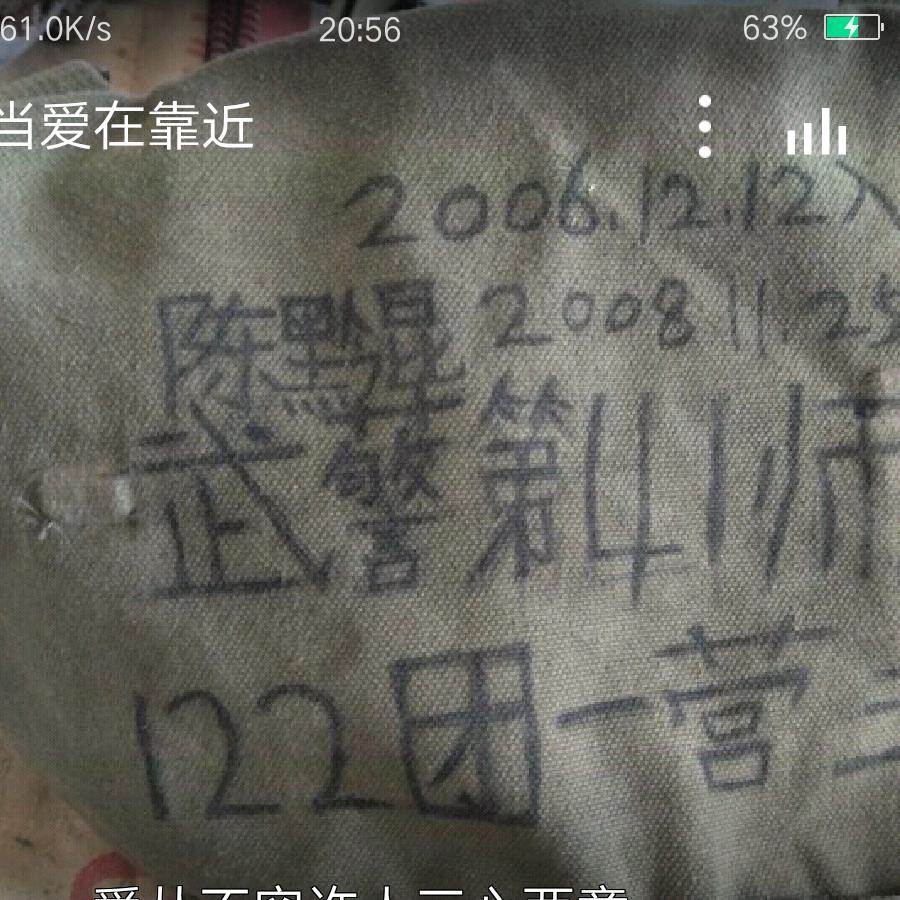 61.0K/s 20:56 63%
当爱在靠近
2006.12.12入
陈默琨 2008 11.25
武警第41师
122团一营
爱从不容许人三心两意